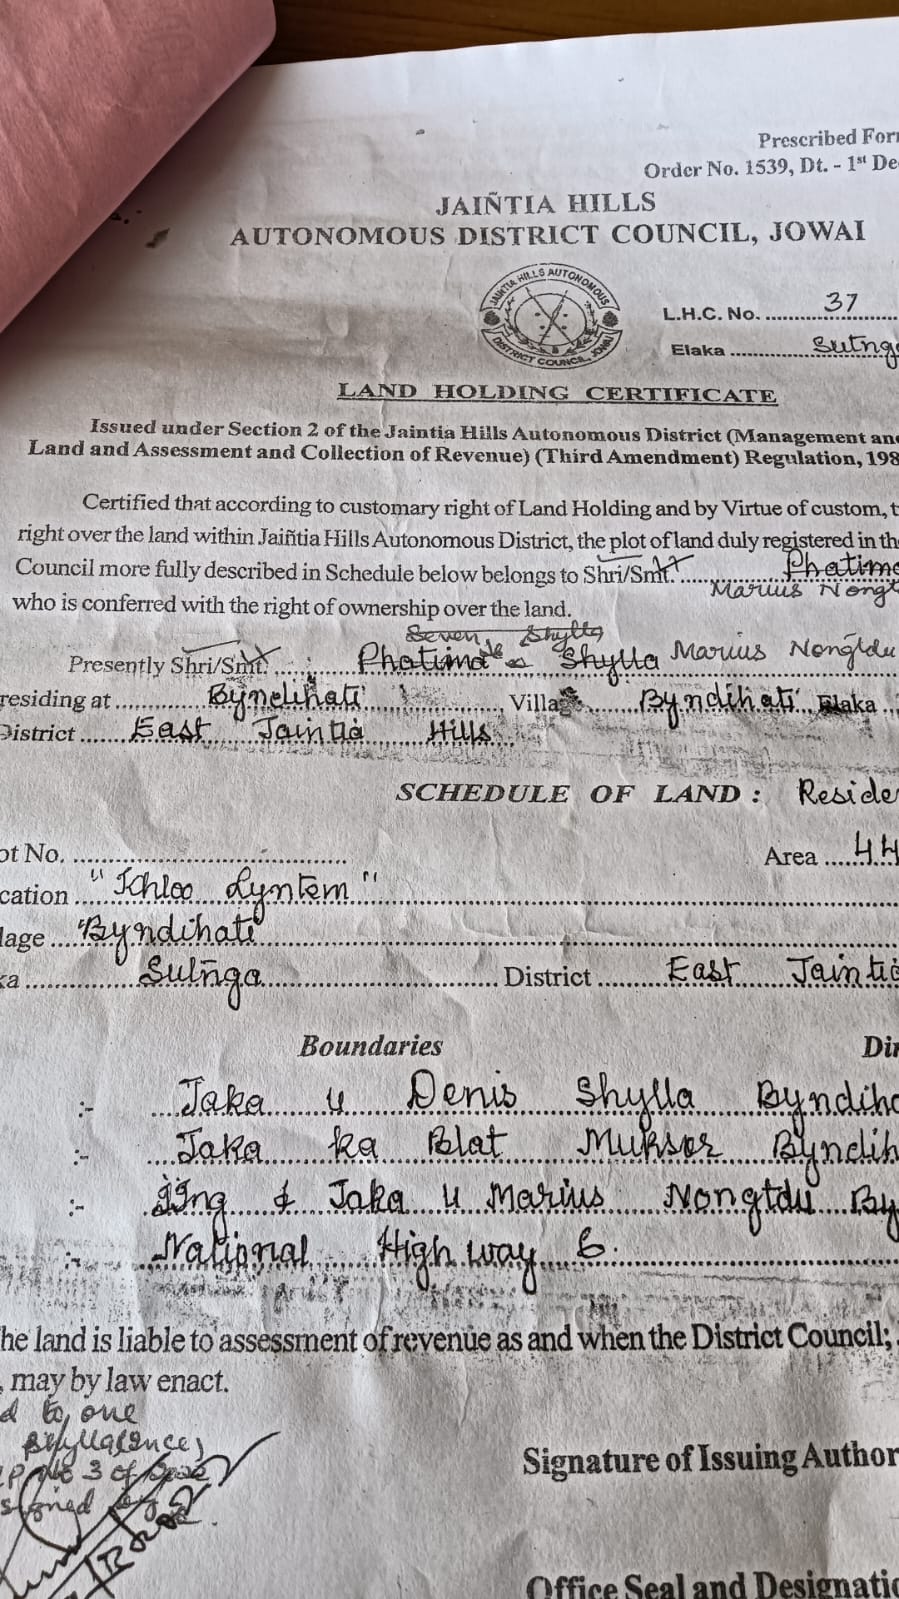 Prescribed For
Order No. 1539, Dt. - 1st De
JAIÑTIA HILLS
AUTONOMOUS DISTRICT COUNCIL, JOWAI
JAIÑTIA HILLS AUTONOMOUS
DISTRICT COUNCIL, JOWAI
L.H.C. No. ............ 37
Elaka ............ Sutnga
LAND HOLDING CERTIFICATE
Issued under Section 2 of the Jaintia Hills Autonomous District (Management an
Land and Assessment and Collection of Revenue) (Third Amendment) Regulation, 198
Certified that according to customary right of Land Holding and by Virtue of custom, t
right over the land within Jaiñtia Hills Autonomous District, the plot of land duly registered in th
Council more fully described in Schedule below belongs to Shri/Smt. ............ Phatima
Marius Nongt
who is conferred with the right of ownership over the land.
Seven Shylla
Presently Shri/Smt. ...... Phatima Shylla Marius Nongtdu
residing at ............ Byndihati ............, Village ...... Byndihati Elaka ..
District ...... East Jaintia Hills
SCHEDULE OF LAND : Reside
ot No. ............
Area ...... 44
cation "Khloo Lyntem"
lage .... Byndihati
ka ............ Sutnga ............ District ......... East Jaintia
Boundaries
Dir
:- Jaka u Denis Shylla Byndiha
:- Jaka ka Blat Muksor Byndih
:- Ïing & Jaka u Marius Nongtdu By
:- National High way 6.
he land is liable to assessment of revenue as and when the District Council;
, may by law enact.
d to one
3 of
signed
Signature of Issuing Author
Office Seal and Designatio